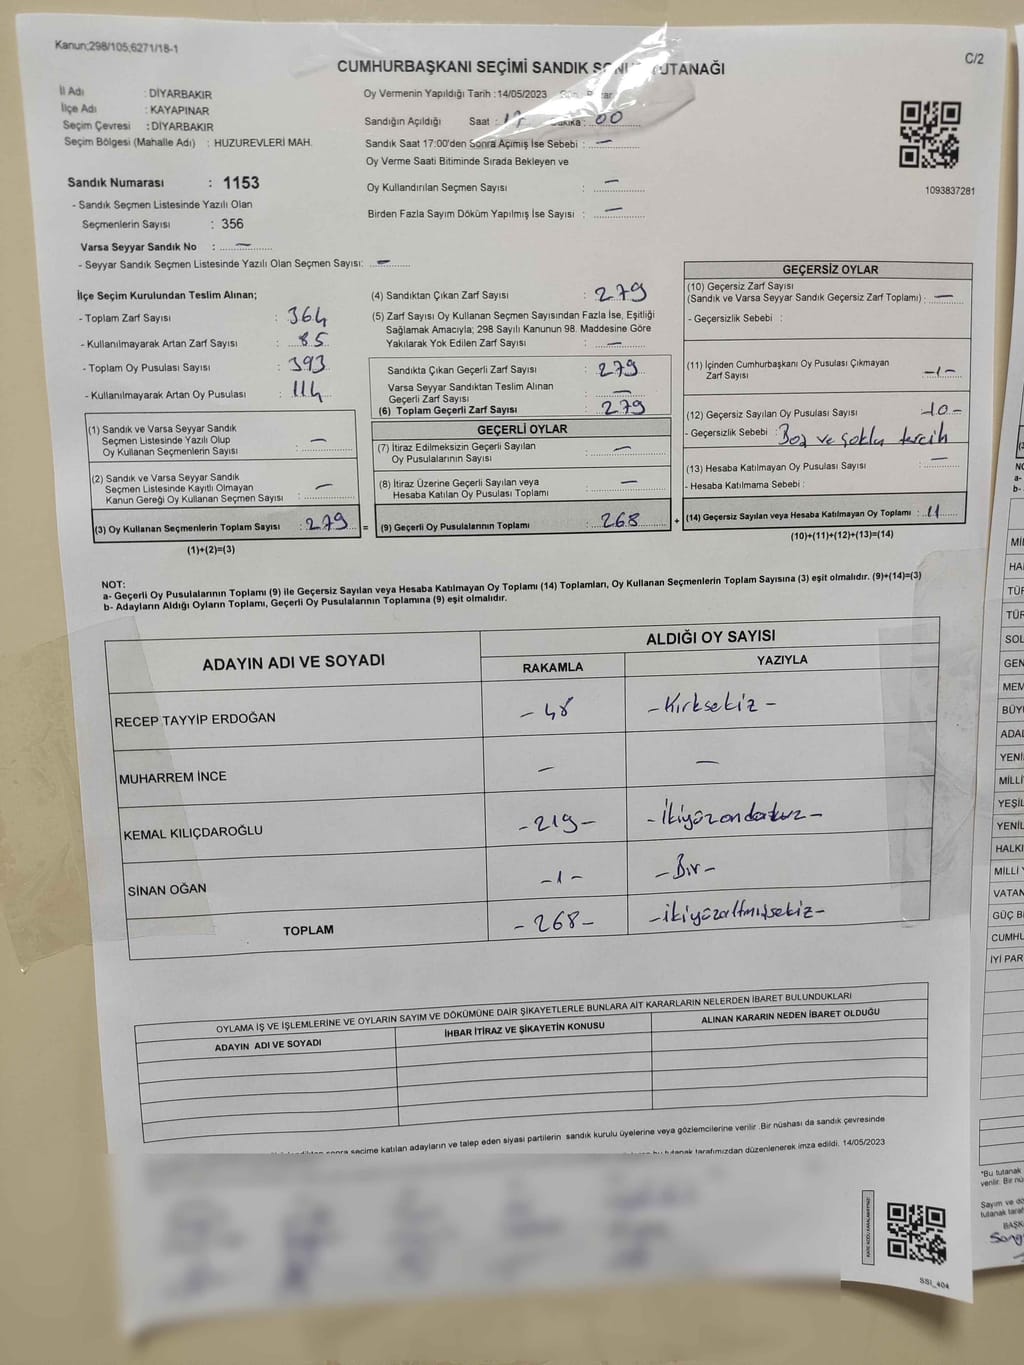 Kanun;298/105;6271/18-1
C/2
CUMHURBAŞKANI SEÇİMİ SANDIK SONUÇ TUTANAĞI
İl Adı : DİYARBAKIR
İlçe Adı : KAYAPINAR
Seçim Çevresi : DİYARBAKIR
Seçim Bölgesi (Mahalle Adı) : HUZUREVLERİ MAH.
Sandık Numarası : 1153
- Sandık Seçmen Listesinde Yazılı Olan
Seçmenlerin Sayısı : 356
Varsa Seyyar Sandık No : –
- Seyyar Sandık Seçmen Listesinde Yazılı Olan Seçmen Sayısı: –
Oy Vermenin Yapıldığı Tarih :14/05/2023
Sandığın Açıldığı Saat : 17 Dakika : 00
Sandık Saat 17:00'den Sonra Açımış İse Sebebi : –
Oy Verme Saati Bitiminde Sırada Bekleyen ve
Oy Kullandırılan Seçmen Sayısı : –
Birden Fazla Sayım Döküm Yapılmış İse Sayısı : –
1093837281
İlçe Seçim Kurulundan Teslim Alınan;
- Toplam Zarf Sayısı : 364
- Kullanılmayarak Artan Zarf Sayısı : 85
- Toplam Oy Pusulası Sayısı : 393
- Kullanılmayarak Artan Oy Pusulası : 114
(1) Sandık ve Varsa Seyyar Sandık
Seçmen Listesinde Yazılı Olup
Oy Kullanan Seçmenlerin Sayısı : –
(2) Sandık ve Varsa Seyyar Sandık
Seçmen Listesinde Kayıtlı Olmayan
Kanun Gereği Oy Kullanan Seçmen Sayısı : –
(3) Oy Kullanan Seçmenlerin Toplam Sayısı : 279 =
(1)+(2)=(3)
(4) Sandıktan Çıkan Zarf Sayısı : 279
(5) Zarf Sayısı Oy Kullanan Seçmen Sayısından Fazla İse, Eşitliği
Sağlamak Amacıyla; 298 Sayılı Kanunun 98. Maddesine Göre
Yakılarak Yok Edilen Zarf Sayısı : –
Sandıkta Çıkan Geçerli Zarf Sayısı : 279
Varsa Seyyar Sandıktan Teslim Alınan
Geçerli Zarf Sayısı : –
(6) Toplam Geçerli Zarf Sayısı : 279
GEÇERLİ OYLAR
(7) İtiraz Edilmeksizin Geçerli Sayılan
Oy Pusulalarının Sayısı : –
(8) İtiraz Üzerine Geçerli Sayılan veya
Hesaba Katılan Oy Pusulası Toplamı : –
(9) Geçerli Oy Pusulalarının Toplamı : 268 +
GEÇERSİZ OYLAR
(10) Geçersiz Zarf Sayısı
(Sandık ve Varsa Seyyar Sandık Geçersiz Zarf Toplamı) : –
- Geçersizlik Sebebi :
(11) İçinden Cumhurbaşkanı Oy Pusulası Çıkmayan
Zarf Sayısı : -1-
(12) Geçersiz Sayılan Oy Pusulası Sayısı : -10-
- Geçersizlik Sebebi : Boş ve çoklu tercih
(13) Hesaba Katılmayan Oy Pusulası Sayısı : –
- Hesaba Katılmama Sebebi :
(14) Geçersiz Sayılan veya Hesaba Katılmayan Oy Toplamı : 11
(10)+(11)+(12)+(13)=(14)
NOT:
a- Geçerli Oy Pusulalarının Toplamı (9) ile Geçersiz Sayılan veya Hesaba Katılmayan Oy Toplamı (14) Toplamları, Oy Kullanan Seçmenlerin Toplam Sayısına (3) eşit olmalıdır. (9)+(14)=(3)
b- Adayların Aldığı Oyların Toplamı, Geçerli Oy Pusulalarının Toplamına (9) eşit olmalıdır.
ADAYIN ADI VE SOYADI
ALDIĞI OY SAYISI
RAKAMLA YAZIYLA
RECEP TAYYİP ERDOĞAN - 48 -Kırksekiz -
MUHARREM İNCE – –
KEMAL KILIÇDAROĞLU -219- -ikiyüzondokuz-
SİNAN OĞAN -1- -Bir-
TOPLAM -268- -ikiyüzaltmışsekiz-
OYLAMA İŞ VE İŞLEMLERİNE VE OYLARIN SAYIM VE DÖKÜMÜNE DAİR ŞİKAYETLERLE BUNLARA AİT KARARLARIN NELERDEN İBARET BULUNDUKLARI
ADAYIN ADI VE SOYADI İHBAR İTİRAZ VE ŞİKAYETİN KONUSU ALINAN KARARIN NEDEN İBARET OLDUĞU
sonra seçime katılan adayların ve talep eden siyasi partilerin sandık kurulu üyelerine veya gözlemcilerine verilir .Bir nüshası da sandık çevresinde
bu tutanak tarafımızdan düzenlenerek imza edildi. 14/05/2023
SSI_404